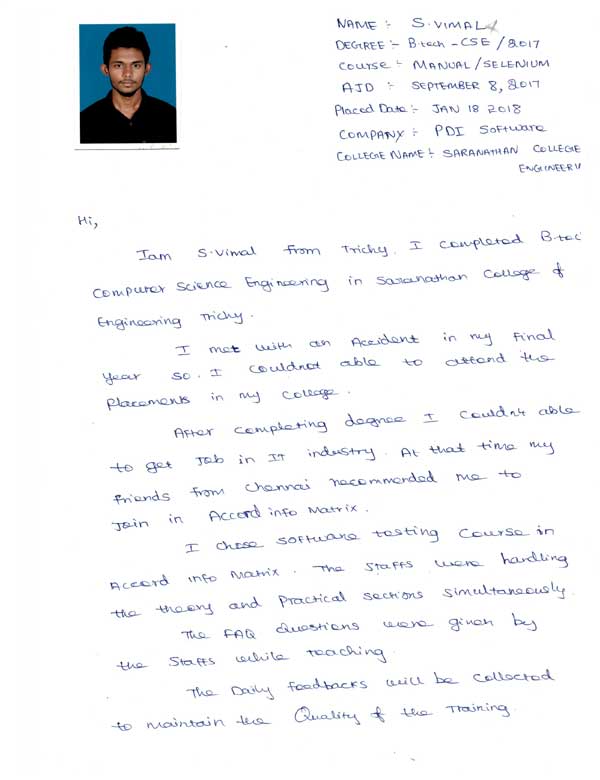 NAME :- S.VIMAL
DEGREE :- B.tech - CSE / 2017
Course :- MANUAL / SELENIUM
AJD :- SEPTEMBER 8, 2017
Placed Date :- JAN 18 2018
COMPANY :- PDI Software
COLLEGE NAME :- SARANATHAN COLLEGE
ENGINEERI
Hi,
Iam S.Vimal from Trichy. I completed B.tec
Computer Science Engineering in Saranathan College of
Engineering Trichy.
I met with an Accident in my Final
Year so. I couldnot able to attend the
Placements in my College.
After completing degree I couldn't able
to get Job in IT industry. At that time my
friends from Chennai recommended me to
Join in Accord info Matrix.
I chose software testing Course in
Accord info Matrix. The Staffs were handling
the theory and Practical sections simultaneously.
The FAQ questions were given by
the Staffs while teaching.
The Daily feedbacks will be collected
to maintain the Quality of the Training.